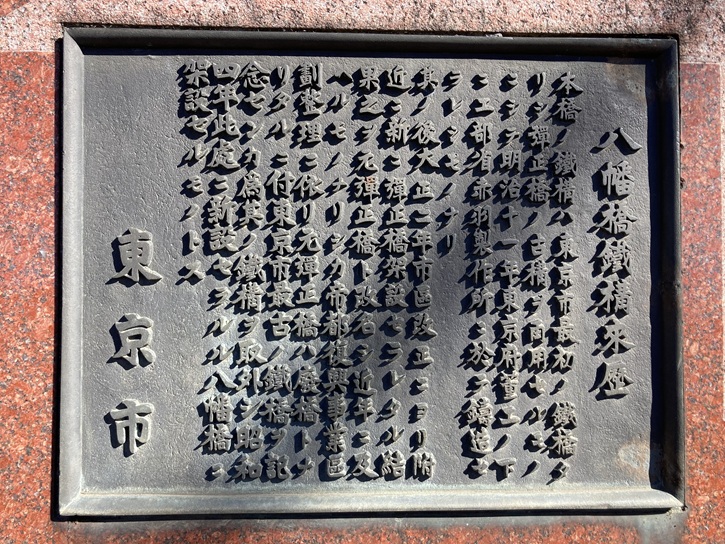 八幡橋鐵構來歴
本橋ノ鐵構ハ東京市最初ノ鐵橋タ
リシ彈正橋ノ古構ヲ再用セルモノ
ニシテ明治十一年東京府董工ノ下
ニ工部省赤羽製作所ニ於テ鑄造セ
ラレシモノナリ
其ノ後大正二年市區改正ニヨリ附
近ニ新ニ彈正橋架設セラレタル結
果之ヲ元彈正橋ト改名シ近年ニ及
ハルモノナリシカ帝都復興事業區
劃整理ニ依リ元彈正橋ハ廢橋トナ
リタルニ付東京市最古ノ鐵橋ヲ記
念センカ爲其ノ鐵構ヲ取外シ昭和
四年此處ニ新設セラルル八幡橋ニ
架設セルモノトス
東京市